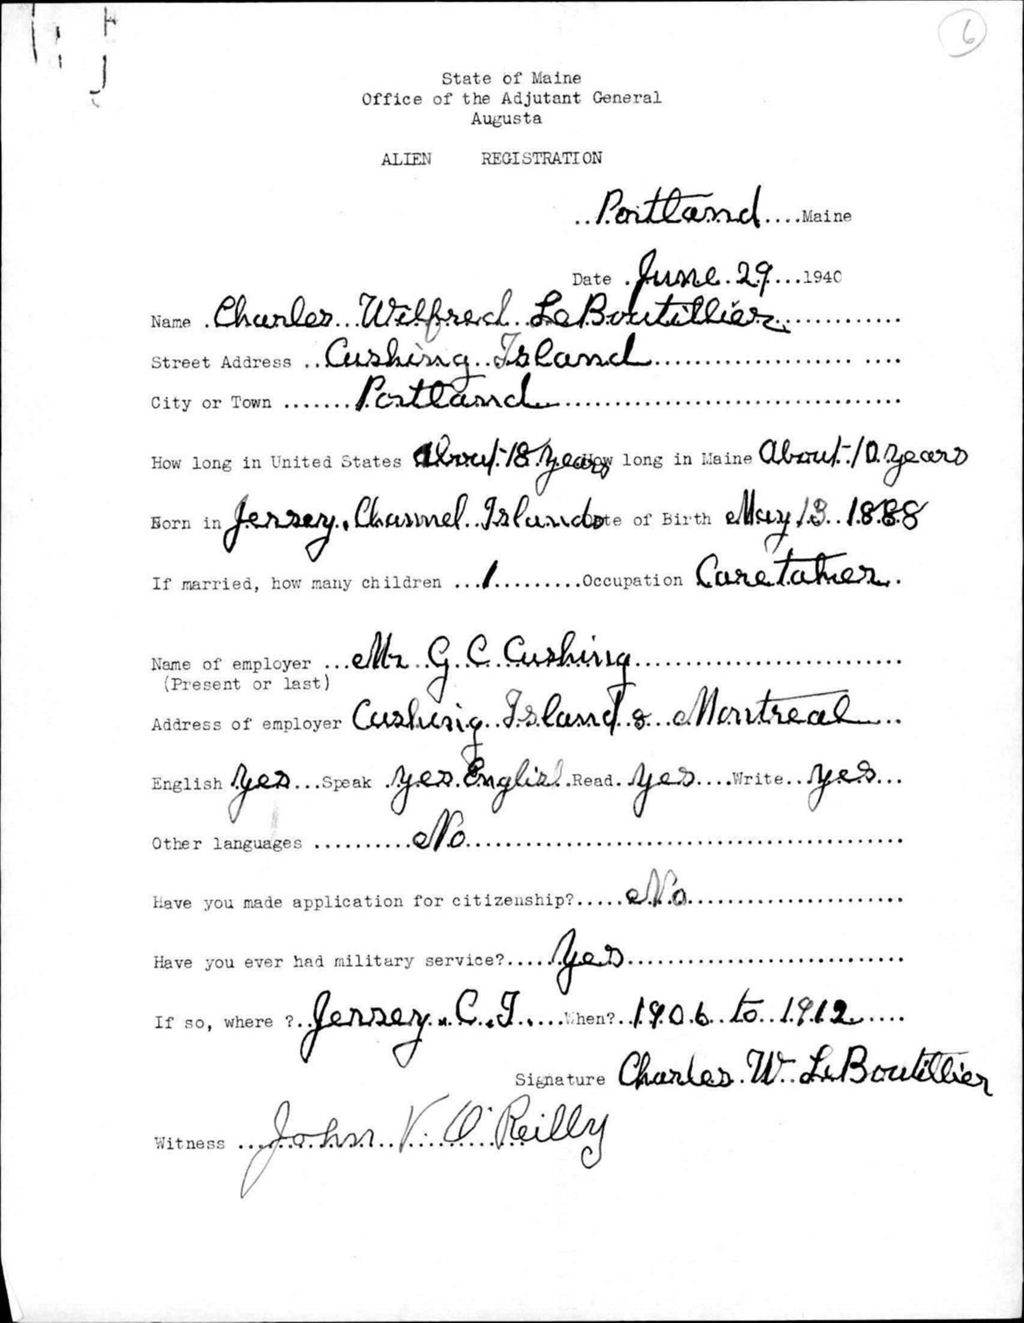 6
State of Maine
Office of the Adjutant General
Augusta
ALIEN REGISTRATION
..Portland....Maine
Date .June.29...1940
Name .Charles..Wilfred..LeBoutillier............
Street Address ..Cushing..Island.................. ....
City or Town .......Portland..................................
How long in United States About 18 years How long in Maine About 10 years
Born in Jersey, Channel Islands Date of Birth May 13..1888
If married, how many children ...1.........Occupation Caretaker..
Name of employer ...Mr..G.C.Cushing..........................
(Present or last)
Address of employer Cushing..Island & Montreal...
English yes...Speak .yes.English.Read..yes....Write..yes...
Other languages ..........No...........................................
Have you made application for citizenship?.....No.....................
Have you ever had military service?.....Yes...........................
If so, where ?..Jersey..C.I.....When?..1906..to..1912.....
Signature Charles.W..LeBoutillier
Witness ...John..V..O'Reilly